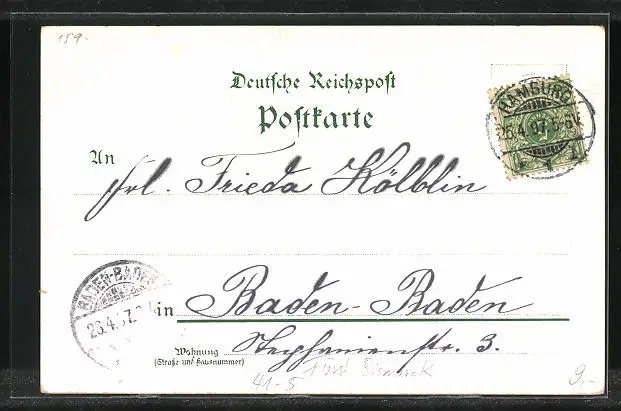 159.-
Deutsche Reichspost
Postkarte
HAMBURG
26.4.97.5-6V.
1
An
Frl. Frieda Kölblin
BADEN-BADEN
26.4.97.
in Baden-Baden
Wohnung Stephanienstr. 3.
(Straße und Hausnummer)
41-5 Fürst Bismarck
9,-